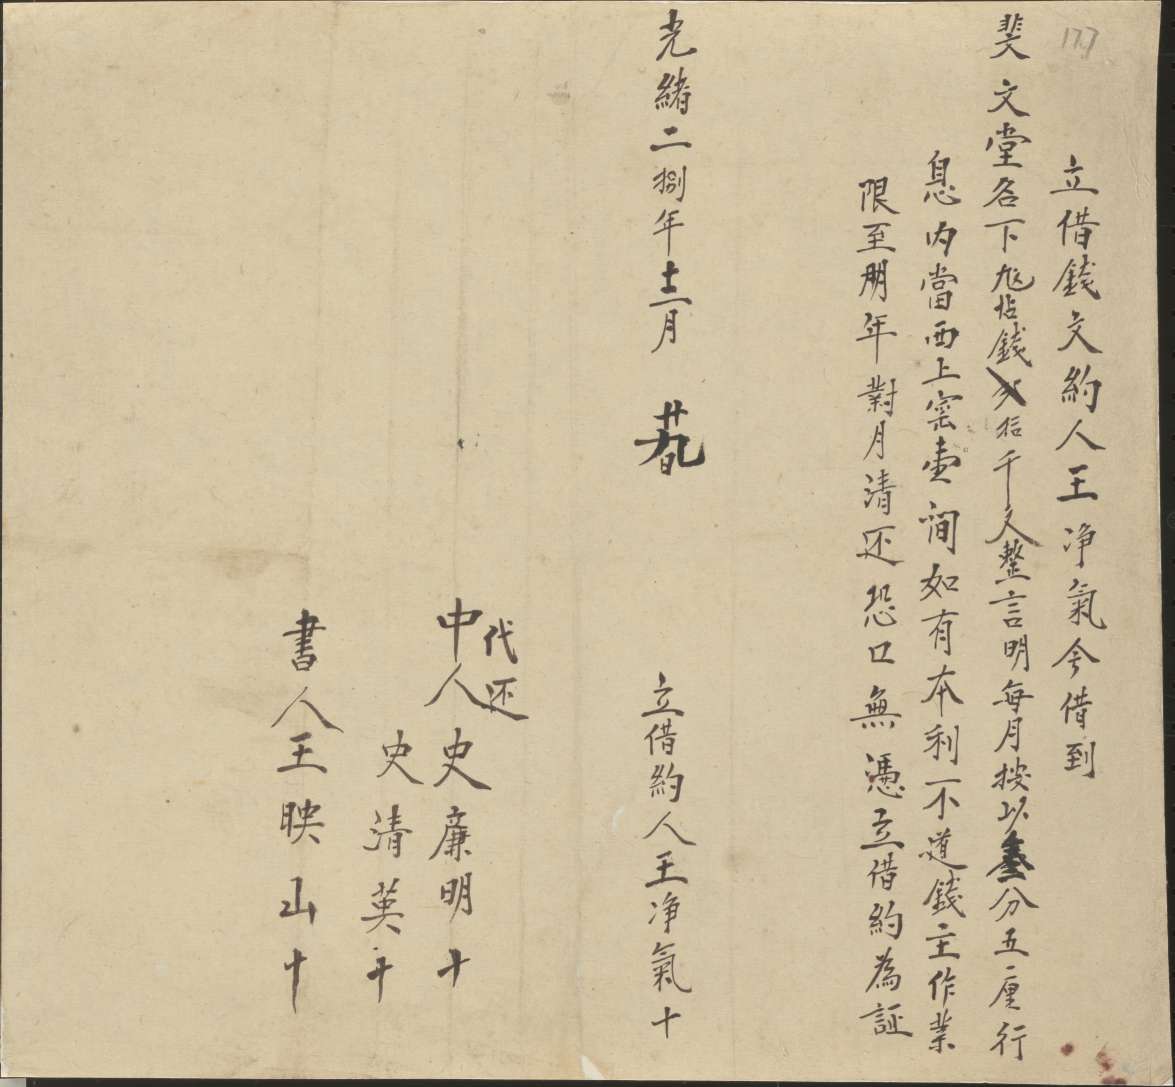 177
立借錢文約人王净氣今借到
斐文堂名下九㡳錢拾千文整言明每月按以叁分五厘行
息内當西上窑壹间如有本利不道錢主作業
限至明年對月清还恐口無憑立借約為証
光緒二捌年十二月 廿九日
立借約人王净氣十
代还
中人史廉明十
史清英十
書人王映山十